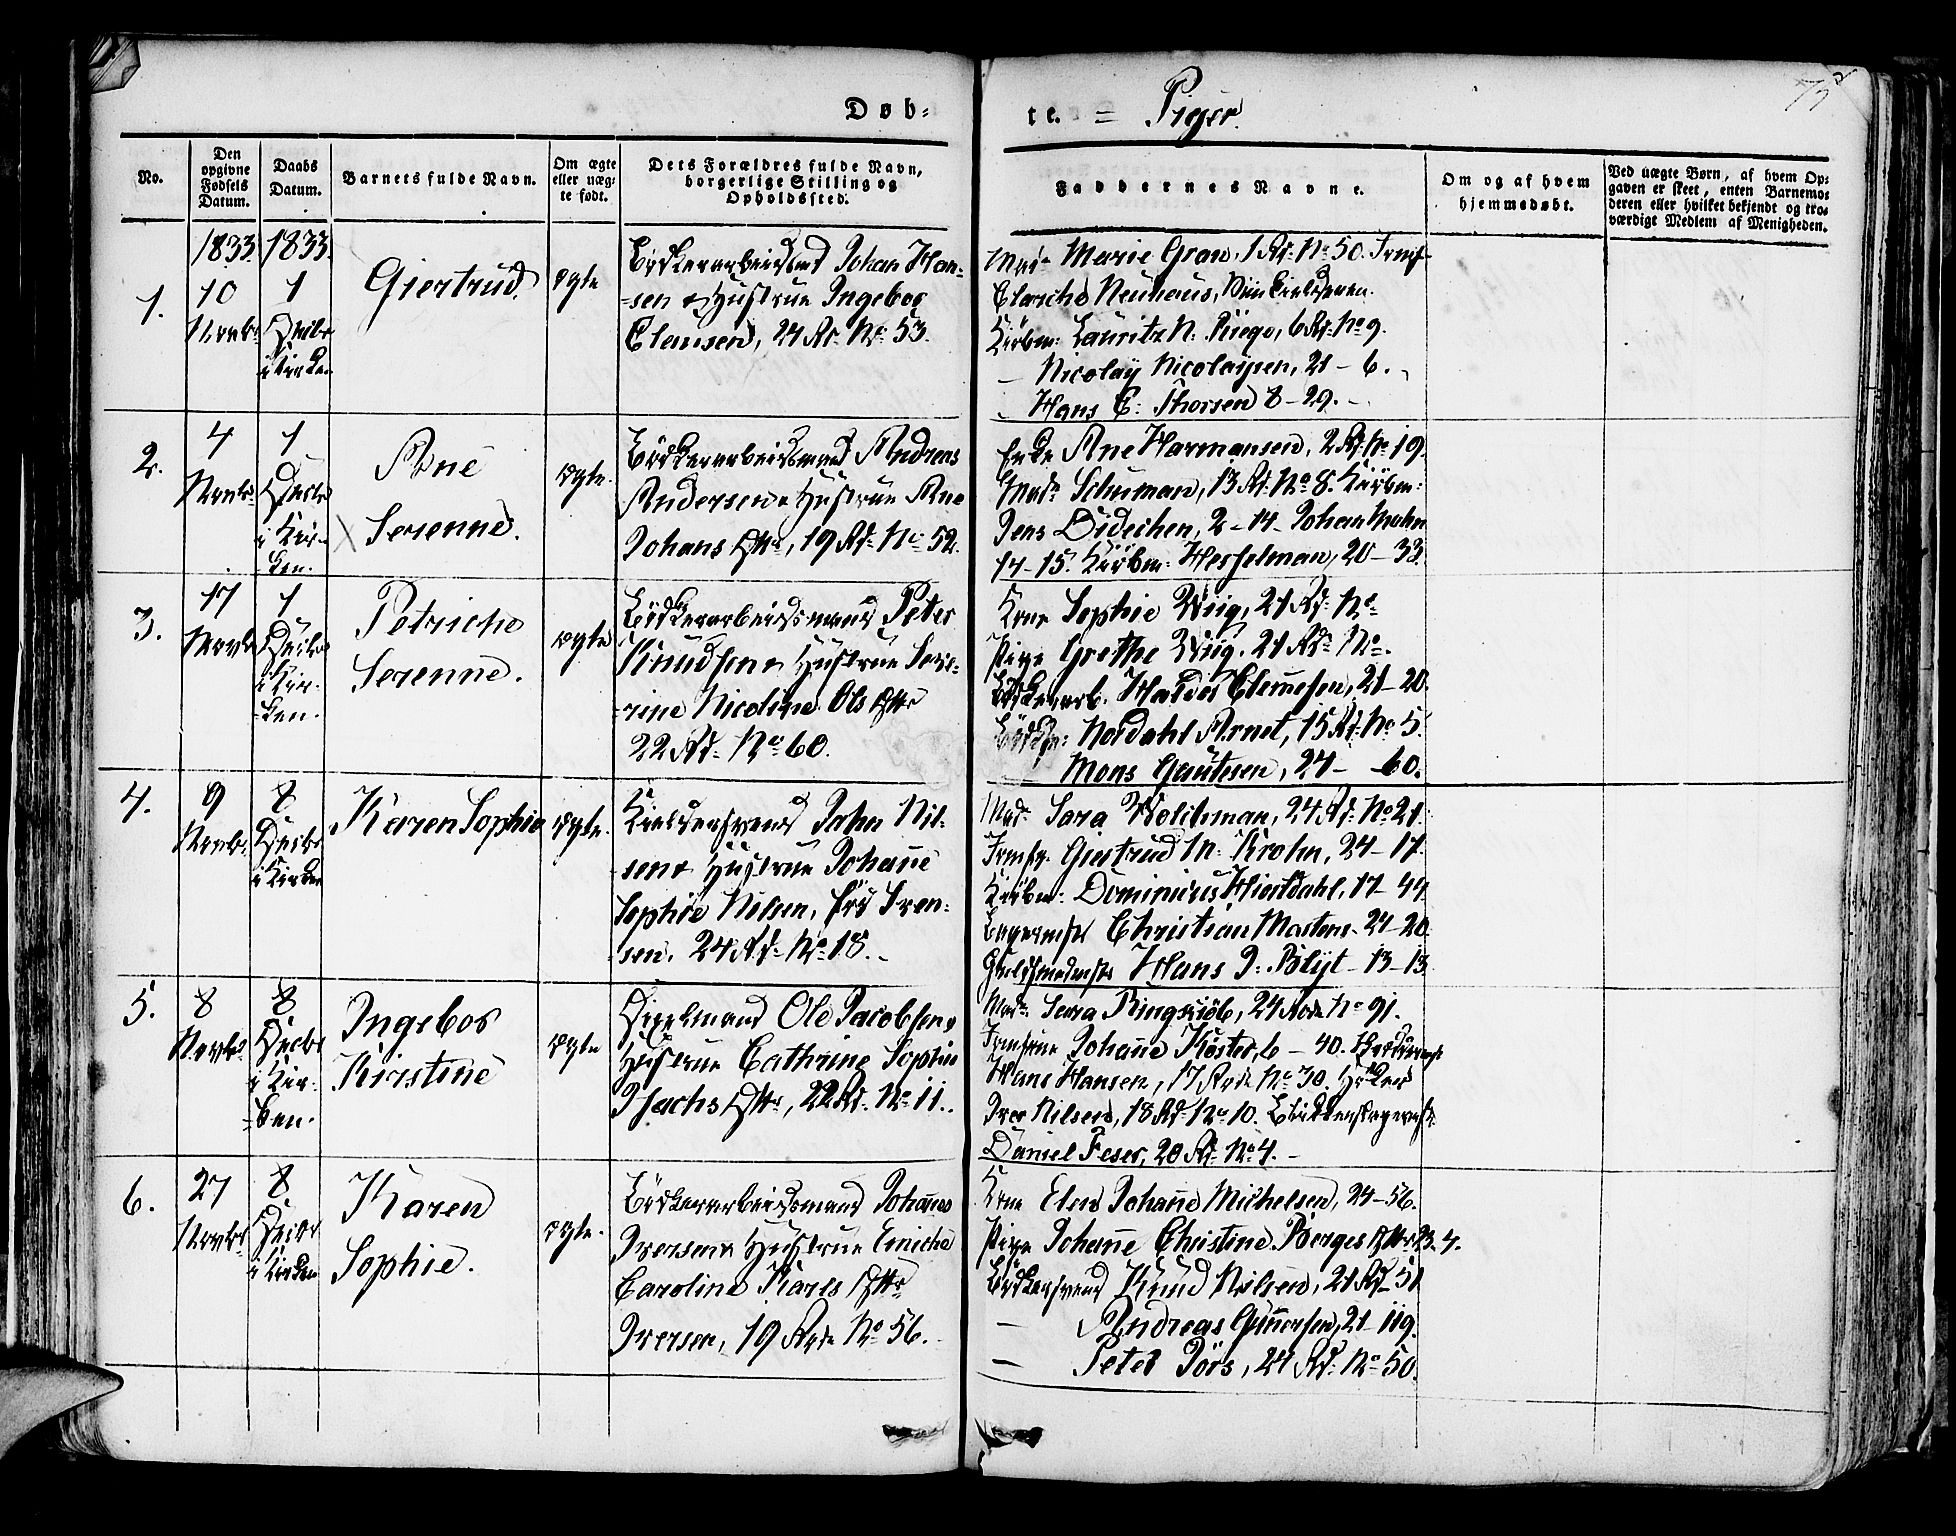 Døb=
te. = Piger.
73
No.
Den opgivne Fødsels Datum.
Daabs Datum.
Barnets fulde Navn.
Om ægte eller uæg= te født.
Dets Forældres fulde Navn, borgerlige Stilling og Opholdssted.
Faddernes Navne.
Om og af hvem hjemmedøbt.
Ved uægte Børn, af hvem Op= gaven er skeet, enten Barnemo= deren eller hvilket bekjendt og tro= værdigt Medlem af Menigheden.
1.
1833.
10
Novbr
1833.
1
Decbr
i Kirken
Giertrud.
ægte
Bødkerarbeidsmd Johan Han=
=sen & Hustrue Ingebor
Clausen, 24 Rd. No. 53.
Mad. Marie Gran, 1 Rd. No 50. Jomf.
Elasche Neuhaus,
Kiøbm: Lauritz N. Riege, 6 Rd: No 9.
— Nicolay Nicolaysen, 21 – 6.
— Hans C: Thorsen 8 – 29.
2.
4
Novbr.
1
Decbr
i Kir=
=ken.
Ane
Serenne.
ægte.
Bødkerarbeidsmand Andreas
Andersen & Hustrue Ane
Johans Dttr, 19 Rd. No 52.
Enke Ane Harmansen, 2 Rd. No 19.
Mad. Schuman, 13 Rd. No 8. Kiøbm:
Jens Didechen, 2 – 14. Johan Mohn
14 – 15. Kiøbm: Hesselman, 20 – 33.
3.
17
Novbr
1
Decbr
i Kir=
=ken.
Petriche
Serenne.
ægte
Bødkerarbeidsmand Peter
Knudsen & Hustrue Seve=
=rine Nicoline Ols Dttr
22 Rd. No 60.
Kone Sophie Wiig, 21 Rd. No
Pige Grethe Wiig. 21 Rd. No.
Bødkerarb. Halvor Clemesen, 21 – 20.
Nordahl Arnet, 15 Rd. No 5.
Mons Gautesen, 24 – 60.
4.
9
Novbr.
8
Decbr
i Kirken
Karen Sophie
ægte.
Kieldersvend John Nil=
=sen & Hustrue Johanne
Sophie Nilsen, fød Iven=
=sen. 24 Rd. No 18.
Mad. Sara Wolchman, 24 Rd. No 21.
Jomfr. Giertrud M: Krohn, 24 – 17.
Kiøbm: Dominicus Hiortdahl, 17 – 44.
Bagermst Christian Martens. 24 – 20.
Guldsmedmst Hans J: Blyt – 13 – 13.
5.
8
Novbr.
8
Decbr
i Kir=
=ken.
Ingebor
Kirstine
ægte
Ole Jacobsen &
Hustrue Cathrine Sophie
Isachs Dttr, 22 Rd. No 11.
Mad. Sara Ringsiøb, 24 Rode No 91.
Jomfrue Johanne Køster, 6 – 40.
Hans Hansen, 17 Rode No 30. Høker
Iver Nilsen, 18 Rd. No 10.
Daniel Feser, 20 Rd. No 4.
6.
27
Novbr
8
Decbr
i Kirken
Karen
Sophie.
ægte.
Bødkerarbeidsmand Johannes
Iversen & Hustrue Enicke
Caroline Karls Dttr
Iversen, 19 Rode No 56.
Kone Elen Johanne Michelsen, 24 – 56.
Pige Johanne Christine Berges Dttr 23. 4.
Bødkersvend Knud Nilsen, 21 Rd. 51
— Andreas Gunnersen, 21 – 119.
— Peter Jørs, 24 Rd. No 50.